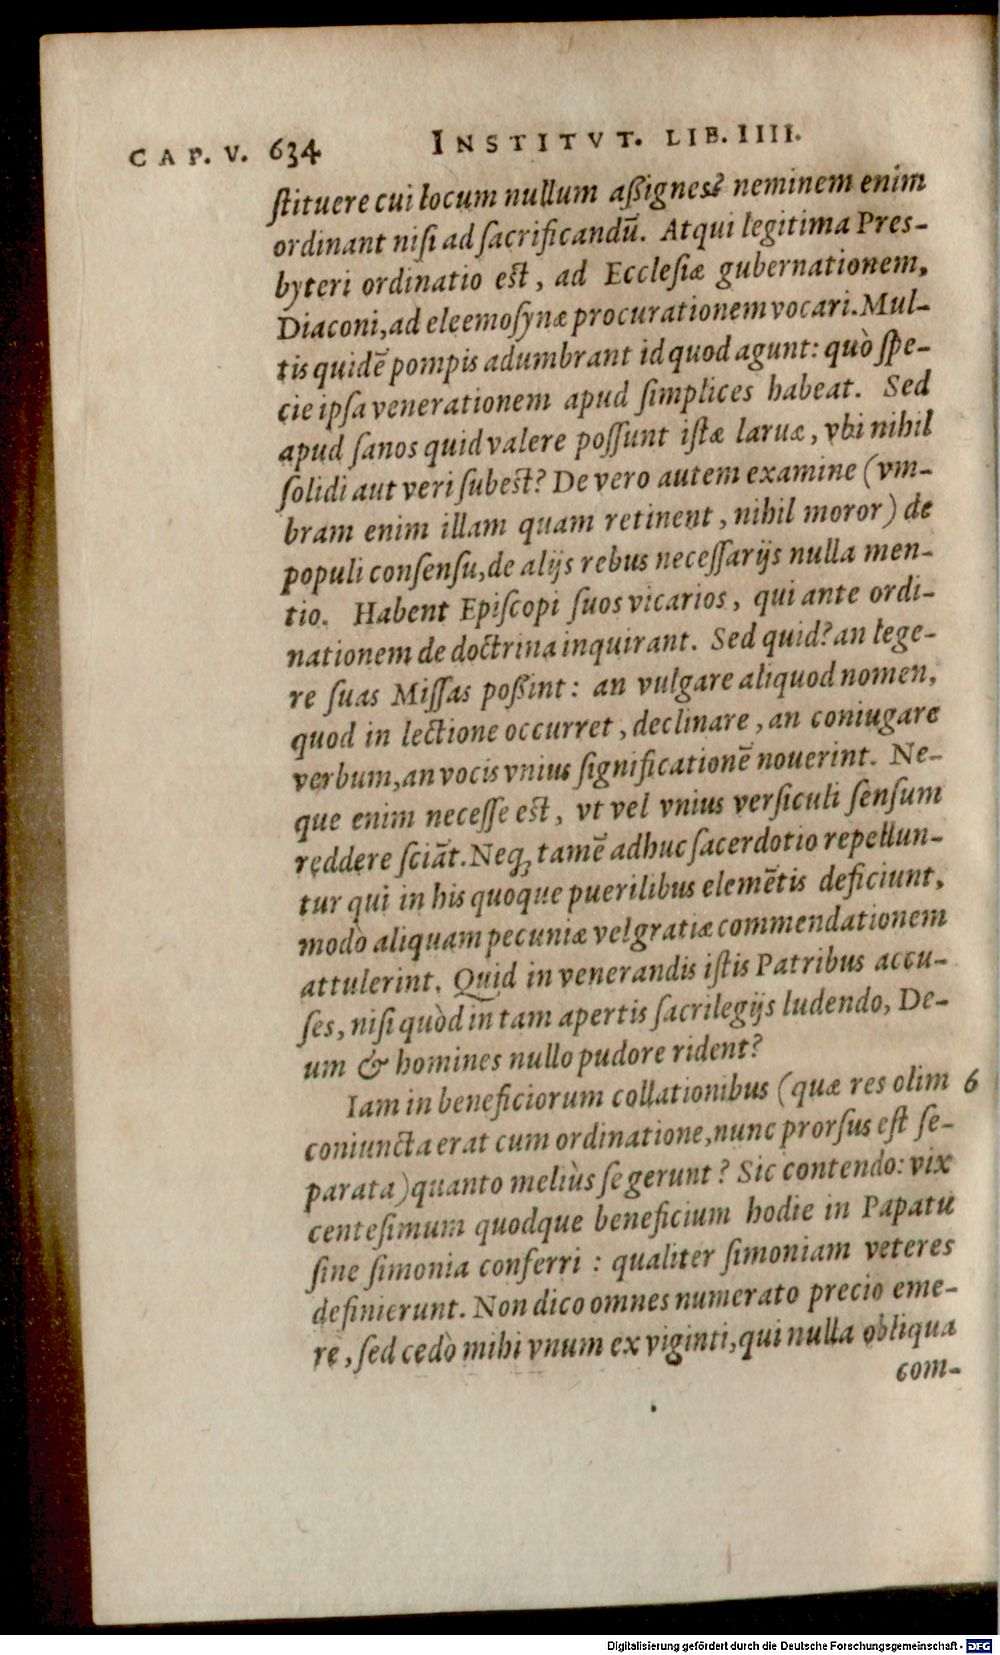 CAP. V. 634 INSTITVT. LIB. IIII.
ſtituere cui locum nullum aßignes? neminem enim
ordinant niſi ad ſacrificandū. Atqui legitima Pres-
byteri ordinatio eſt, ad Eccleſiæ gubernationem,
Diaconi, ad eleemoſynæ procurationem vocari. Mul-
tis quidē pompis adumbrant id quod agunt: quò ſpe-
cie ipſa venerationem apud ſimplices habeat. Sed
apud ſanos quid valere poſſunt iſtæ laruæ, vbi nihil
ſolidi aut veri ſubeſt? De vero autem examine (vm-
bram enim illam quam retinent, nihil moror) de
populi conſenſu, de alijs rebus neceſſarijs nulla men-
tio. Habent Epiſcopi ſuos vicarios, qui ante ordi-
nationem de doctrina inquirant. Sed quid? an lege-
re ſuas Miſſas poßint: an vulgare aliquod nomen,
quod in lectione occurret, declinare, an coniugare
verbum, an vocis vnius ſignificationē nouerint. Ne-
que enim neceſſe eſt, vt vel vnius verſiculi ſenſum
reddere ſciāt. Neq; tamē adhuc ſacerdotio repellun-
tur qui in his quoque puerilibus elemētis deficiunt,
modò aliquam pecuniæ vel gratiæ commendationem
attulerint. Quid in venerandis iſtis Patribus accu-
ſes, niſi quòd in tam apertis ſacrilegijs ludendo, De-
um & homines nullo pudore rident?
Iam in beneficiorum collationibus (quæ res olim 6
coniuncta erat cum ordinatione, nunc prorſus eſt ſe-
parata) quanto meliùs ſe gerunt? Sic contendo: vix
centeſimum quodque beneficium hodie in Papatu
ſine ſimonia conferri: qualiter ſimoniam veteres
definierunt. Non dico omnes numerato precio eme-
re, ſed cedò mihi vnum ex viginti, qui nulla obliqua
com-
Digitalisierung gefördert durch die Deutsche Forschungsgemeinschaft - DFG